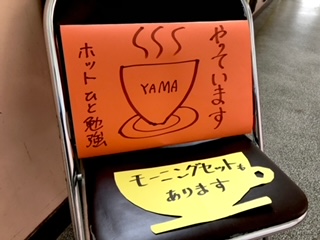 やっています
YAMA
ホット ひと勉強
モーニングセットも
あります